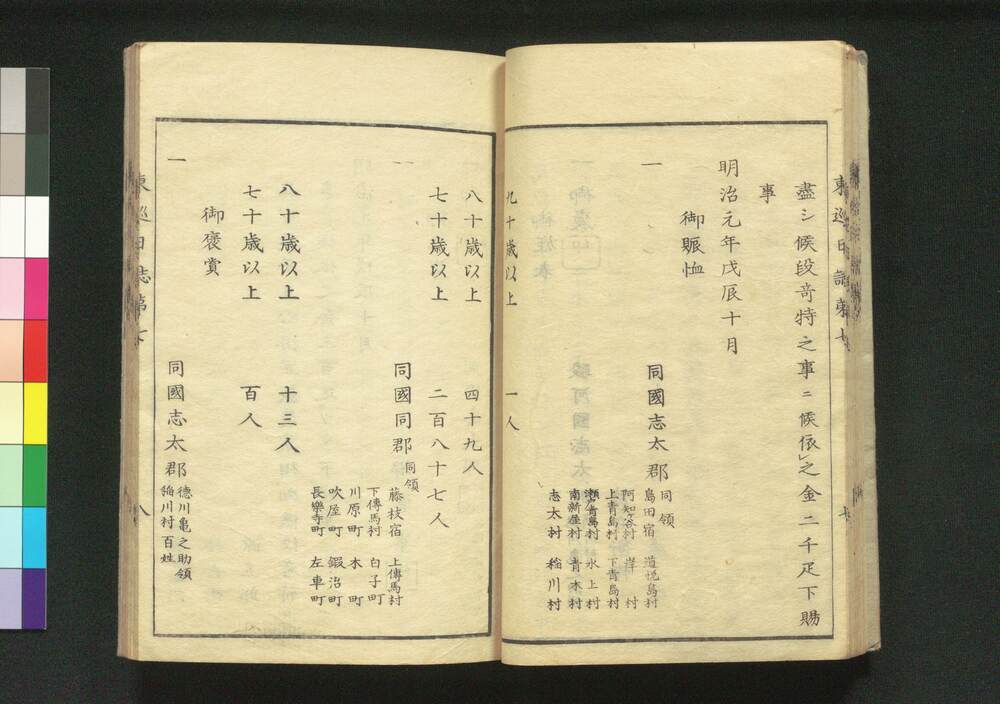 東巡日誌第七
盡シ候段竒特之事ニ候依之金二千疋下賜
事
明治元年戊辰十月
御賑恤
一 同國志太郡 同領
島田宿 道悦島村
阿知谷村 岸村
上青島村 下青島村
瀬戸青島村 水上村
南新屋村 青木村
志太村 稲川村
九十歳以上 一人
八十歳以上 四十九人
七十歳以上 二百八十七人
一 同國同郡 同領
藤枝宿 上傳馬村
下傳馬村 白子町
川原町 木町
吹屋町 鍜冶町
長樂寺町 左車町
八十歳以上 十三人
七十歳以上 百人
御褒賞
一 同國志太郡 德川亀之助領
稲川村百姓
東巡日誌第七 八